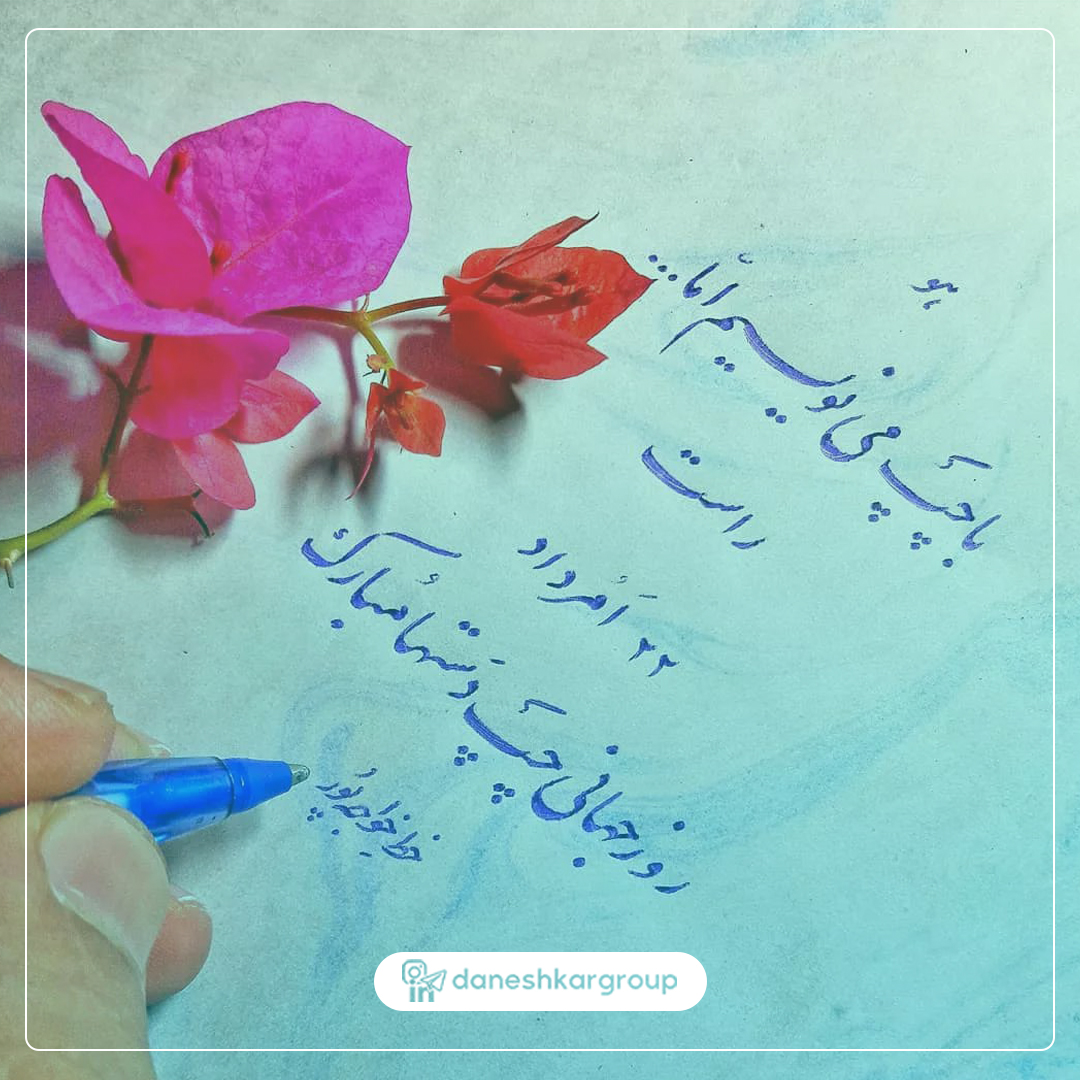 هو
با چپ می‌نویسیم اما...
راست
۲۲ اَمُرداد
روز جهانی چپ دَستها مُبارک
خط خواجه پُور
daneshkargroup